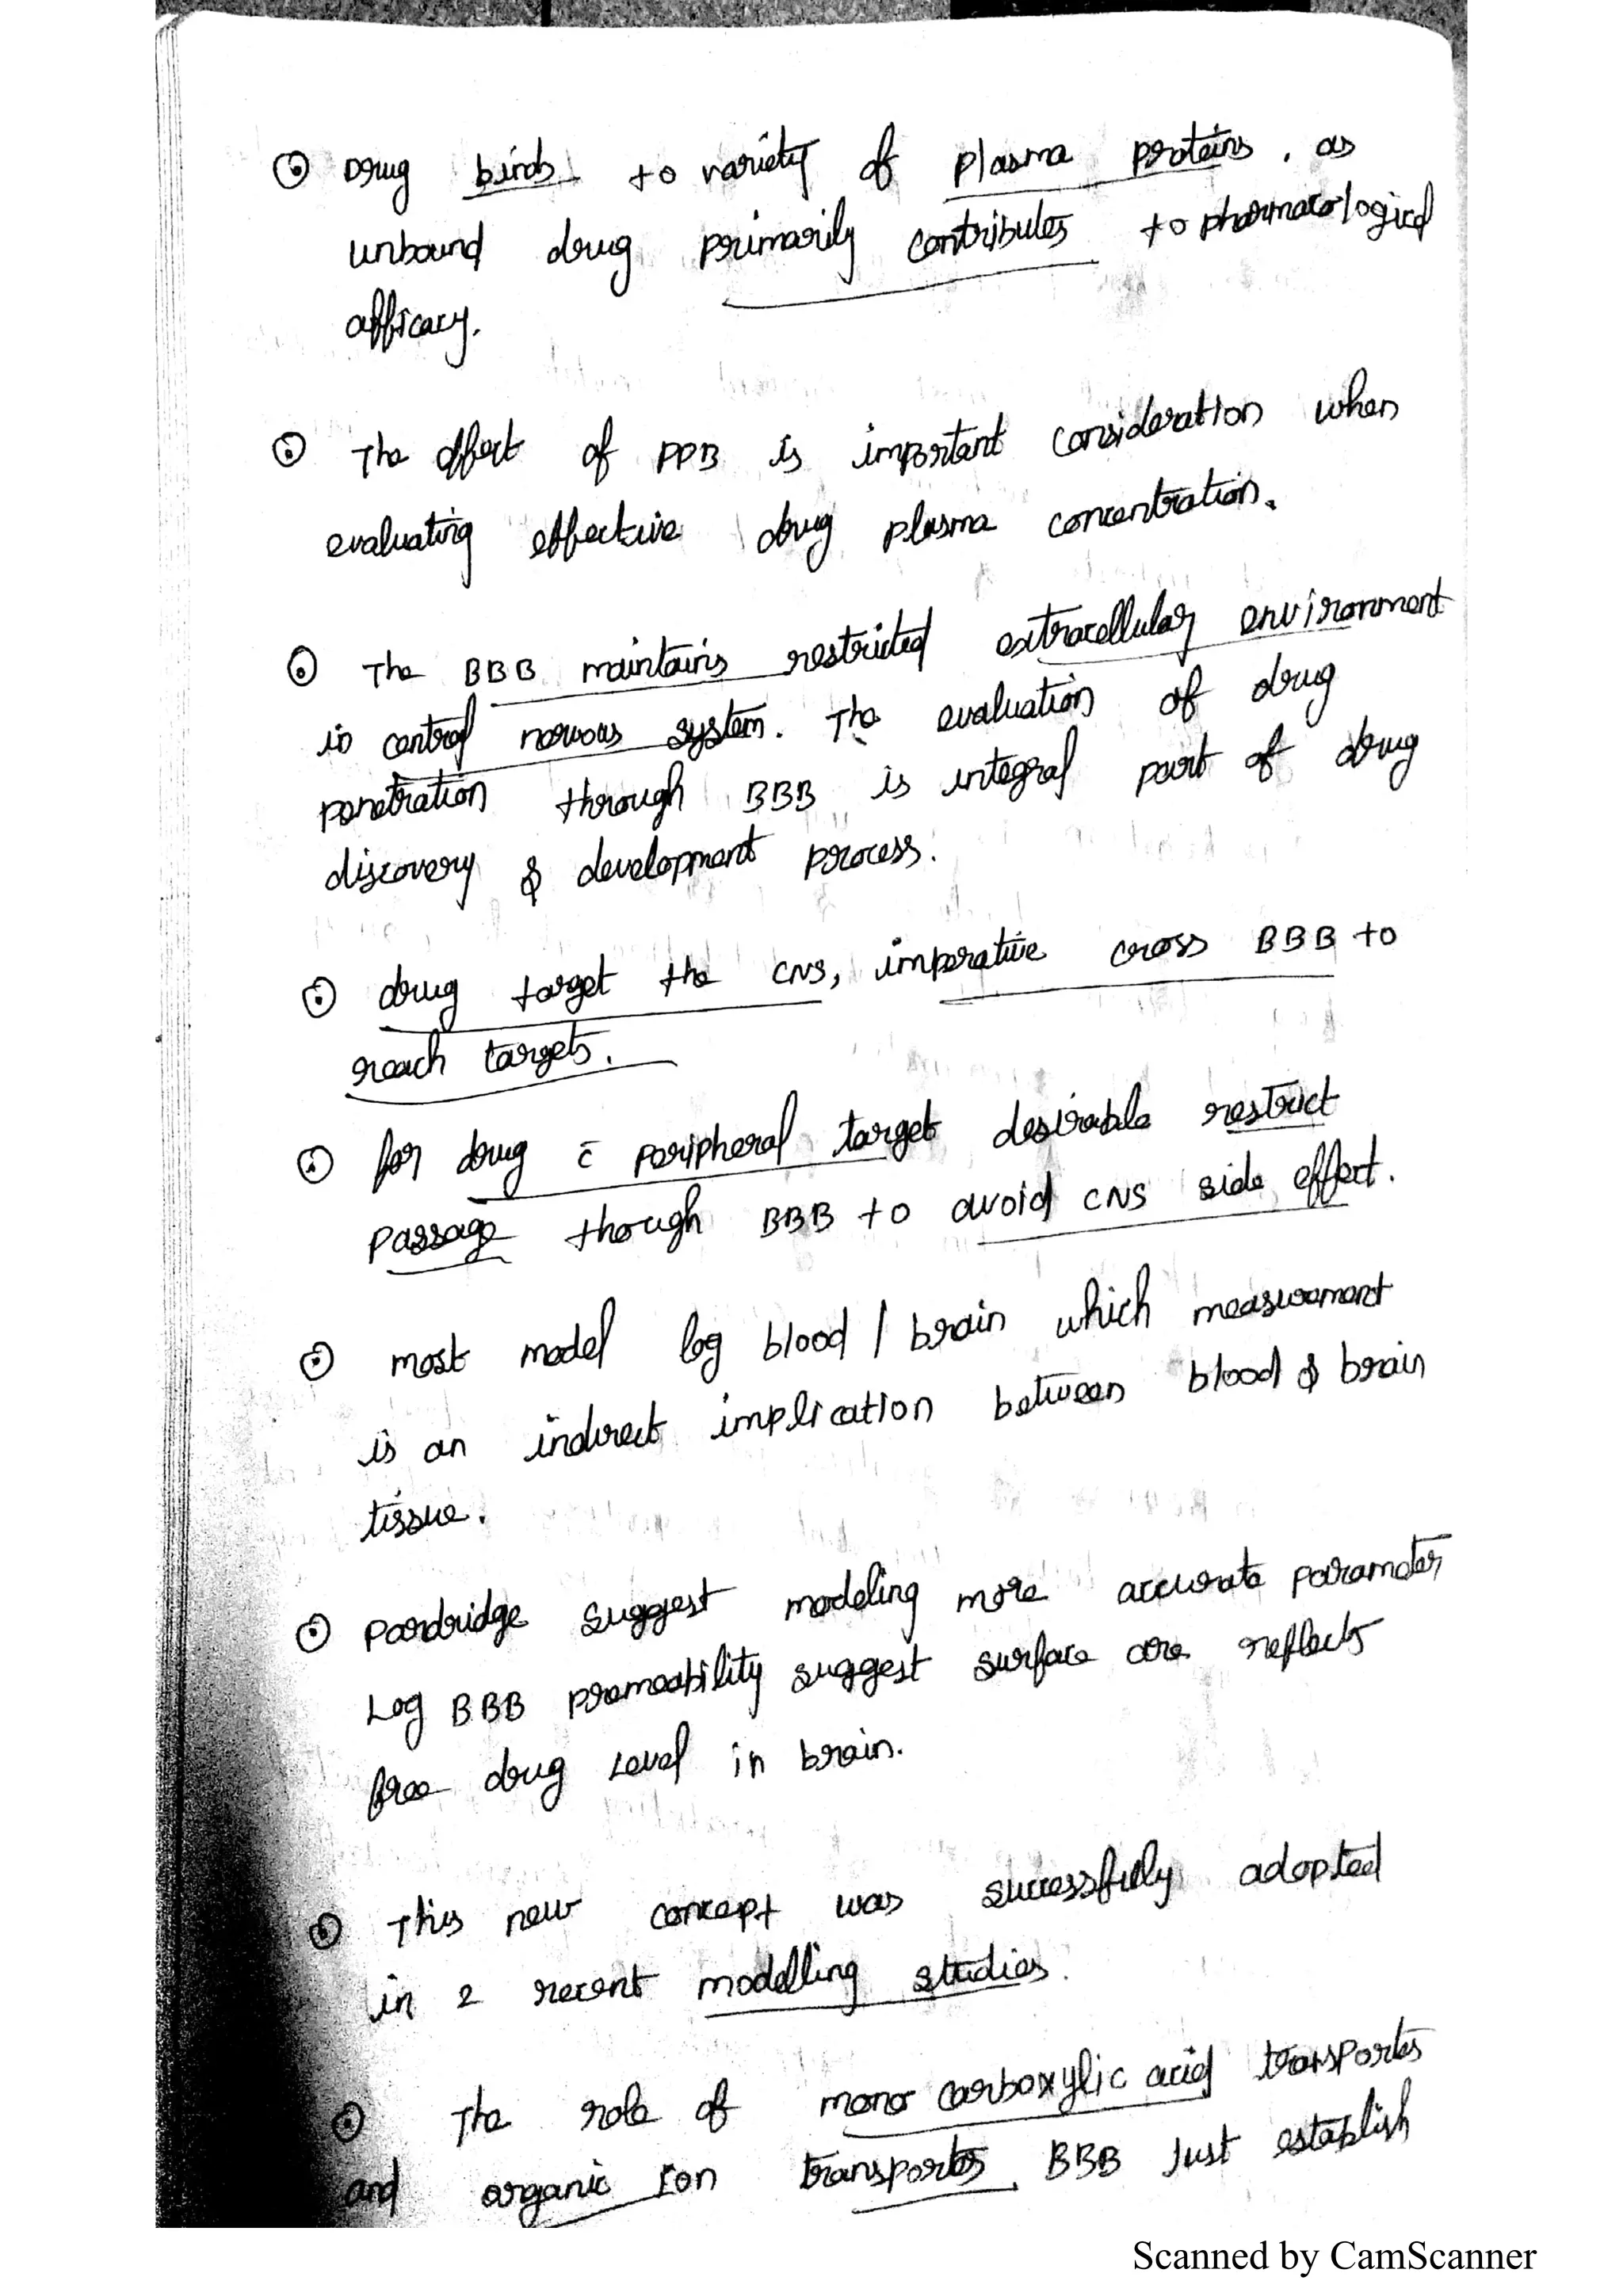 Drug binds to variety of plasma proteins, as
unbound drug primarily contributes to pharmacological
afficacy.
The effect of PPB is important consideration when
evaluating effective drug plasma concentration.
The BBB maintains restricted extracellular environment
in central nervous system. The evaluation of drug
penetration through BBB is integral part of drug
discovery & development process.
drug target the CNS, imperative cross BBB to
reach targets.
for drug c̄ peripheral target desirable restrict
passage though BBB to avoid CNS side effect.
most model log blood / brain which measurement
is an indirect implication between blood & brain
tissue.
Pardridge suggest modeling more accurate parameter
Log BBB premeability suggest surface are reflects
free drug level in brain.
This new concept was successfully adopted
in 2 recent modelling studies.
The role of mono carboxylic acid transportes
and organic Ion transportes. BBB Just establish
Scanned by CamScanner